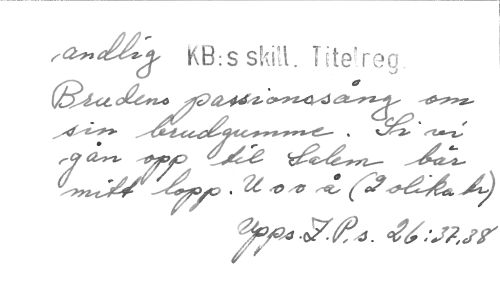 andlig KB:s skill. Titelreg.
Brudens passionssång om
sin brudgumme. Si vi
gån opp till Salem bär
mitt lopp. U o o å (2 olika tr)
Upps. Z.P.s. 26:37,38